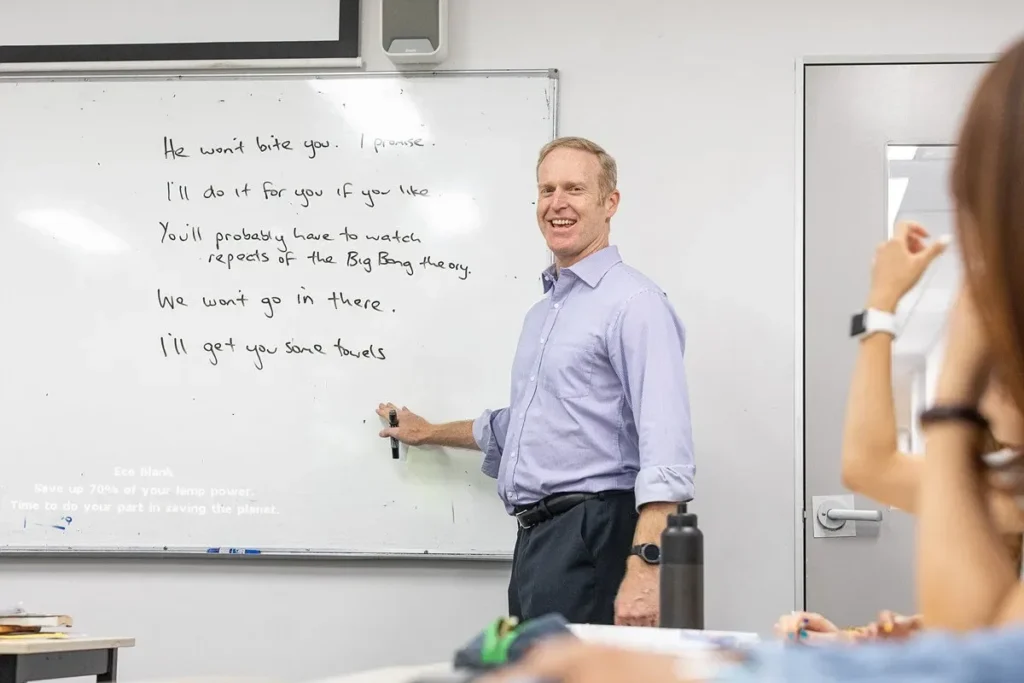 He won't bite you. I promise.
I'll do it for you if you like
You'll probably have to watch
repeats of the Big Bang theory.
We won't go in there.
I'll get you some towels
Eco Blank
Save up 70% of your lamp power.
Time to do your part in saving the planet.